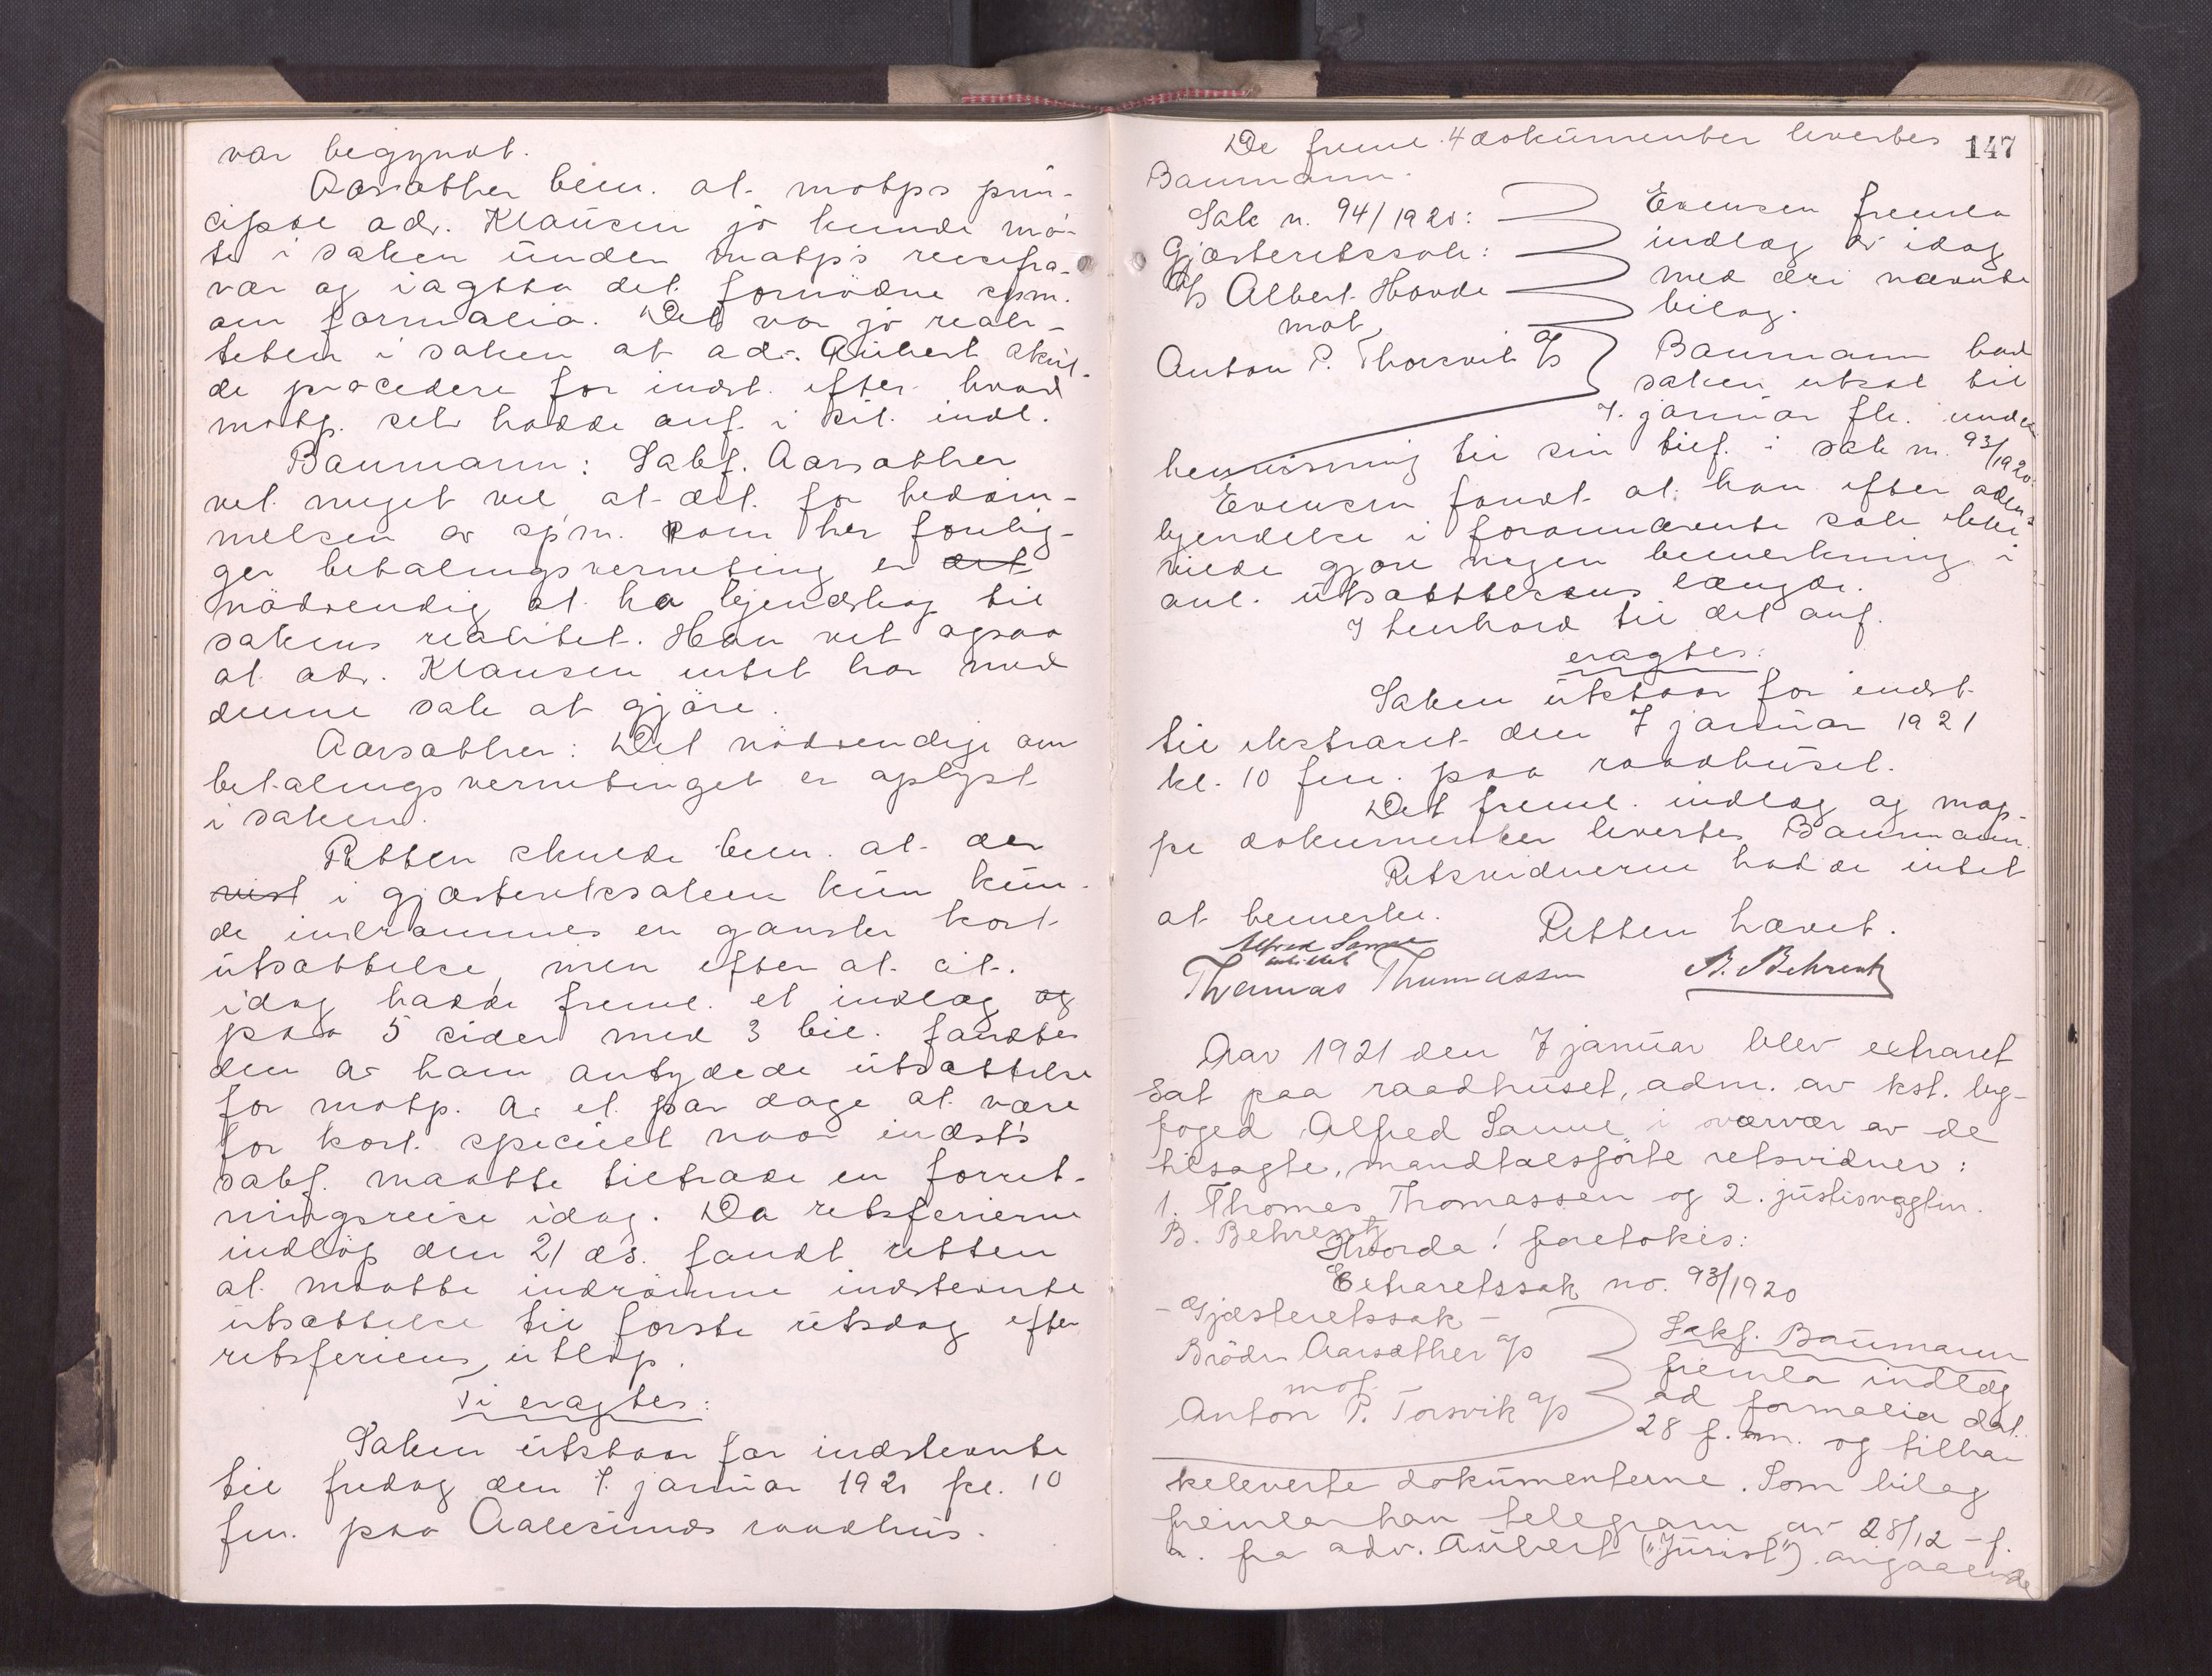 var begyndt.
Aarsæther bem. at motps prin-
cipal adv. Klausen jo kunde mö-
te i saken under motps reisefra-
vær og iagtta det fornödne spm.
om formalia. Det var jo reali-
teten i saken at adv. Aubert skul-
de procedere for indst. efter hvad
motp. selv hadde anf. i sit indl.
Baumann: Sakf. Aarsæther
vet meget vel at det for bedöm-
melsen av spm. som her forelig-
ger betalingsverneting er det
nödvendig at ha kjendskap til
sakens realitet. Han vet ogsaa
at adv. Klausen intet har med
denne sak at gjöre.
Aarsæther: Det nödvendige om
betalingsvernetinget er oplyst
i saken.
Retten skulde bem. at der
vist i gjæsteretssaken kun kun-
de indrömmes en ganske kort
utsættelse, men efter at cit.
idag hadde freml. et indlæg og
paa 5 sider med 3 bil. fandtes
den av ham antydede utsættelse
for motp. av et par dage at være
for kort specielt naar indst's
sakf. maatte tiltræde en forret-
ningsreise idag. Da retsferierne
indlöp den 21 ds. fandt retten
at maatte indrömme indstevnte
utsættelse til förste retsdag efter
retsferiens utlöp.
Ti eragtes:
Saken utstaar for indstevnte
til fredag den 7. januar 1921 kl. 10
fm. paa Aalesunds raadhus.
147
De freml. 4 dokumenter levertes
Baumann.
Sak n. 94/1920:
Gjæsteretssak:
A/s Albert Hovde
mot
Anton P. Thorsvik A/s
Evensen fremla
indlæg av idag
med deri nævnte
bilag.
Baumann bad
saken utsat til
7. januar fk. under
henvisning til sin tilf. i sak n. 93/1920.
Evensen fandt at han efter
kjendelse i forannævnte sak ikke
vilde gjöre nogen bemerkning i
anl. utsættelsens længde.
I henhold til det anf.
eragtes:
Saken utstaar for indst.
til ekstraret den 7 januar 1921
kl. 10 fm. paa raadhuset.
Det freml. indlæg og map-
pe dokumenter levertes Baumann.
Retsvidnerne hadde intet
at bemerke.
Retten hævet.
Alfred Sanne
Thomas Thomassen
B. Behrentz
Aar 1921 den 7 januar blev extraret
sat paa raadhuset, adm. av kst. by-
foged Alfred Sanne i overvær av de
tilsagte, mandtalsförte retsvidner:
1. Thomas Thomassen og 2. justisvagtm.
B. Behrentz
Hvorda! foretokes:
Extraretssak no. 93/1920
- Gjæsteretssak -
Brödr. Aarsæther A/S
mot
Anton P. Torsvik A/S
Sakf. Baumann
fremla indlæg
ad formalia dat.
28 f. m. og tilba-
keleverte dokumenterne. Som bilag
fremla han telegram av 28/12 - f.
a. fra adv. Aubert ("Jurist") angaaende